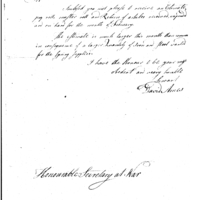 Inclosed you will please to receive an Estimate,
pay roll, muster roll and Return of articles received, expended
and on hand for the month of February
The estimate is much larger this month than common
in consequence of a larger quantity of Iron and Steel wanted
for the Spring supplies
I have the Honour to be your very
obedient and very humble
Servant
David Ames
Honourable Secretary at War